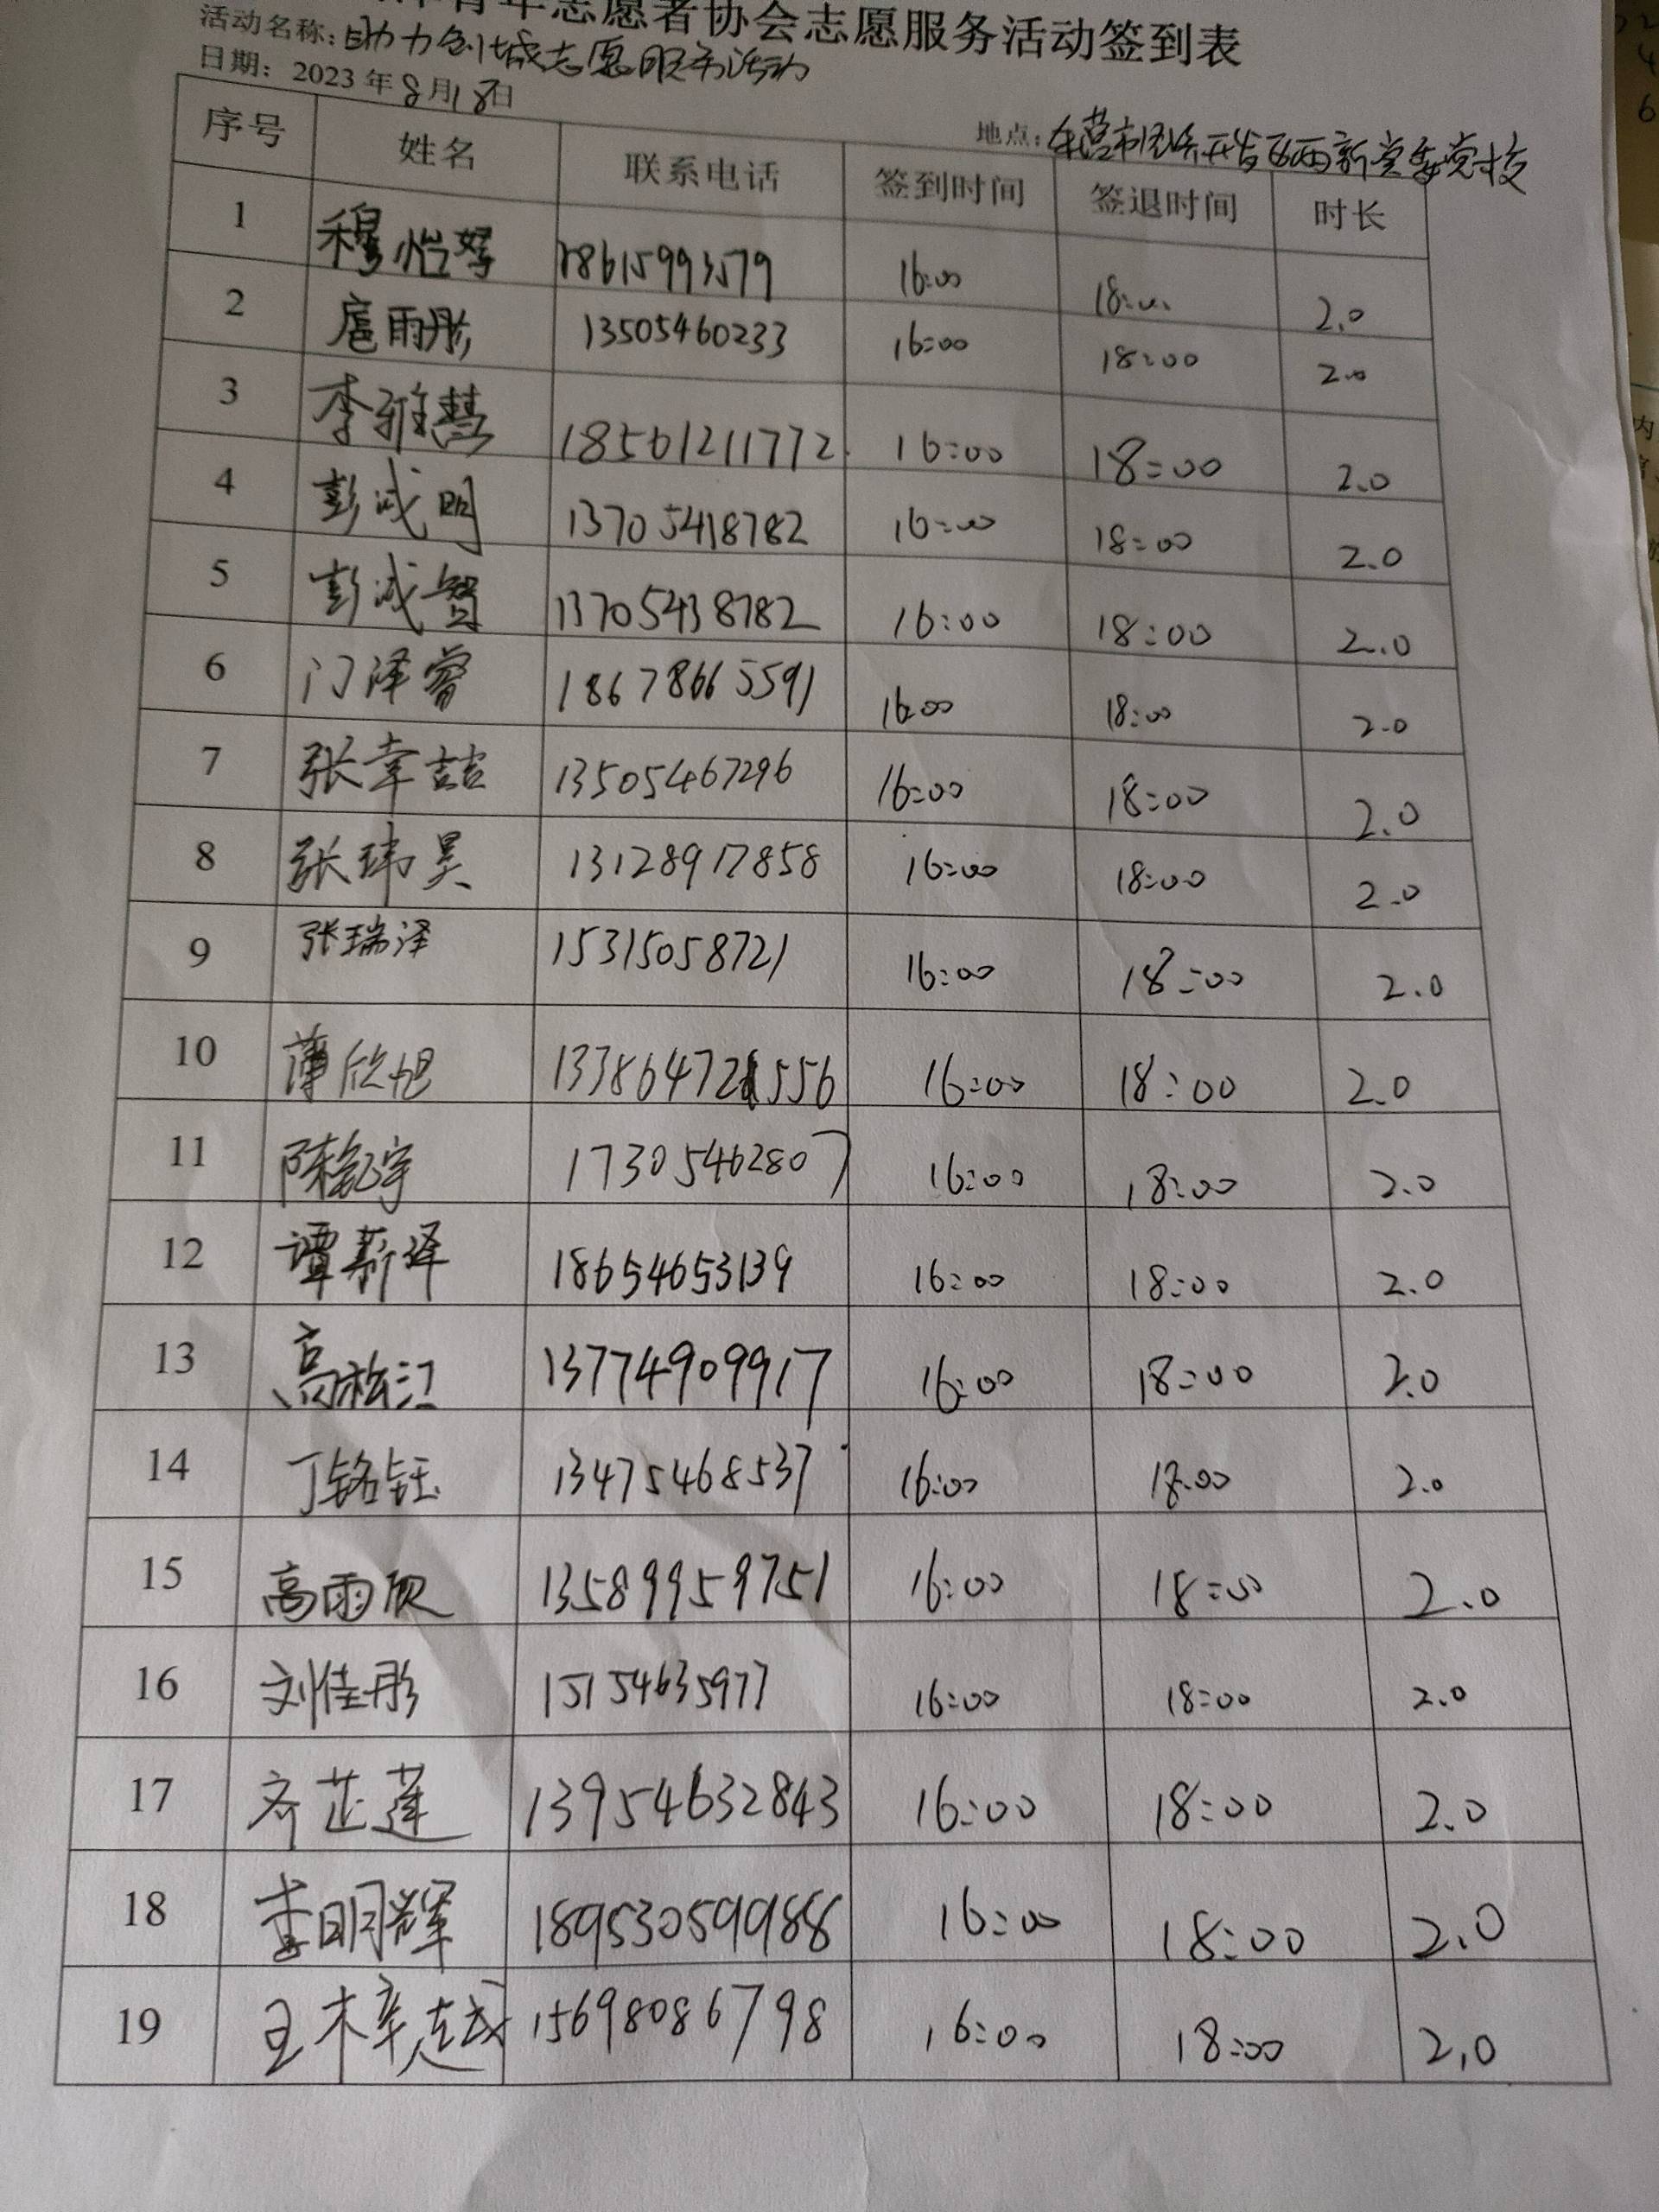 青年志愿者协会志愿服务活动签到表
活动名称:助力创城志愿服务活动
日期: 2023年8月18日
地点:东营市经济开发区两新党委党校
序号 姓名 联系电话 签到时间 签退时间 时长
1 穆怡好 18615993579 16:00 18:00 2.0
2 扈雨彤 13505460233 16:00 18:00 2.0
3 李雅慧 18561211772 16:00 18:00 2.0
4 彭诚明 13705418782 16:00 18:00 2.0
5 彭诚智 13705438782 16:00 18:00 2.0
6 门泽睿 18678665591 16:00 18:00 2.0
7 张幸喆 13505467296 16:00 18:00 2.0
8 张玮昊 13128917858 16:00 18:00 2.0
9 张瑞泽 15315058721 16:00 18:00 2.0
10 薄欣旭 16:00 18:00 2.0
11 陈宇 17305462807 16:00 18:00 2.0
12 谭薪泽 18654653139 16:00 18:00 2.0
13 高松江 13774909917 16:00 18:00 2.0
14 丁铭钰 13475468537 16:00 18:00 2.0
15 高雨欣 13589959751 16:00 18:00 2.0
16 刘佳彤 15154635977 16:00 18:00 2.0
17 齐芷莲 13954632843 16:00 18:00 2.0
18 李明辉 189530599988 16:00 18:00 2.0
19 王梓越 15698086798 16:00 18:00 2.0